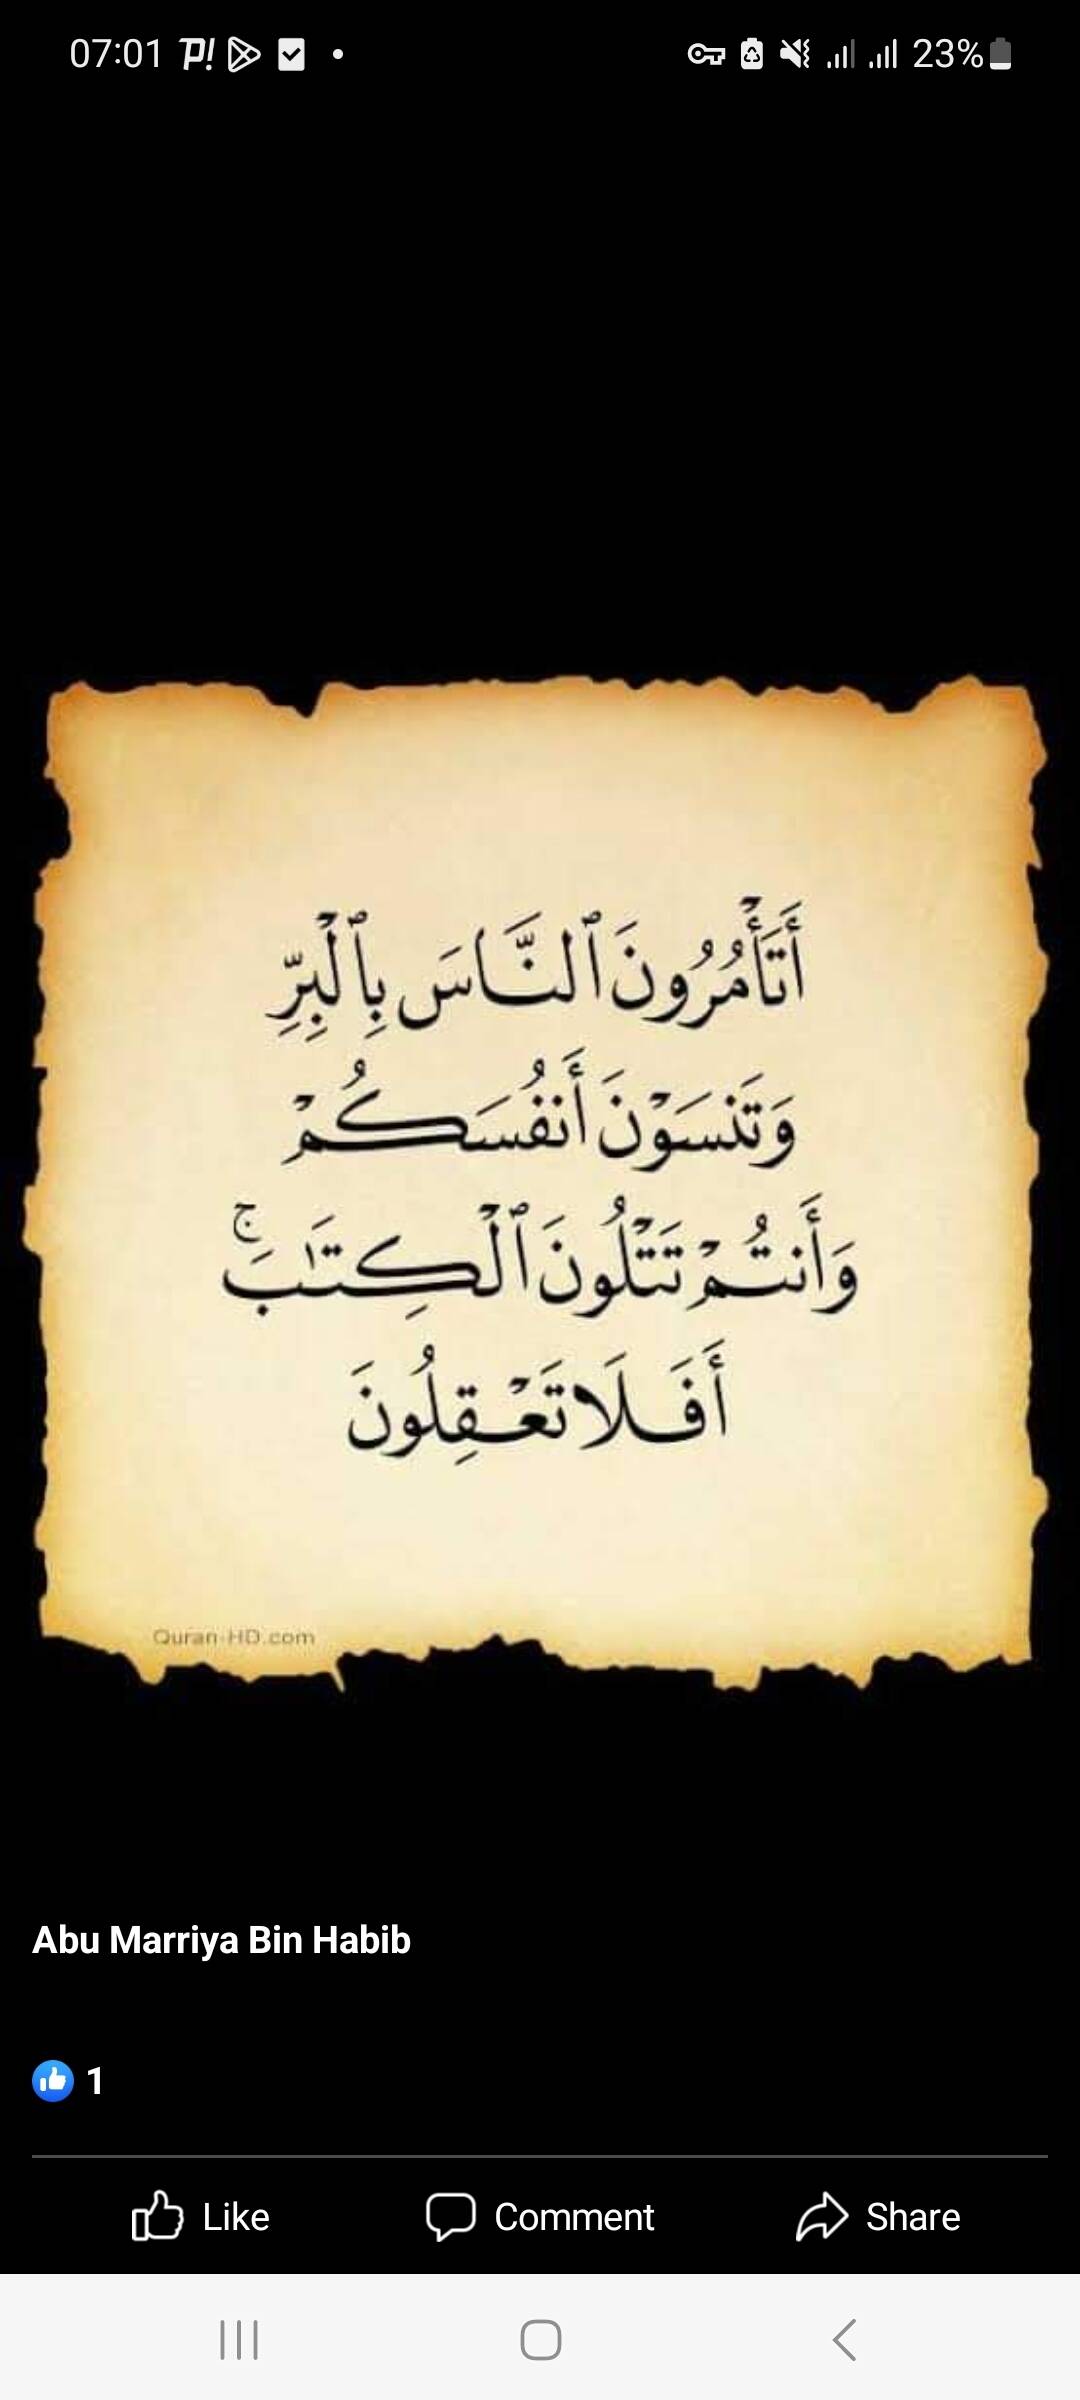 07:01 23%
أَتَأْمُرُونَ ٱلنَّاسَ بِٱلْبِرِّ
وَتَنسَوْنَ أَنفُسَكُمْ
وَأَنتُمْ تَتْلُونَ ٱلْكِتَـٰبَ ۚ
أَفَلَا تَعْقِلُونَ
Quran-HD.com
Abu Marriya Bin Habib
1
Like Comment Share